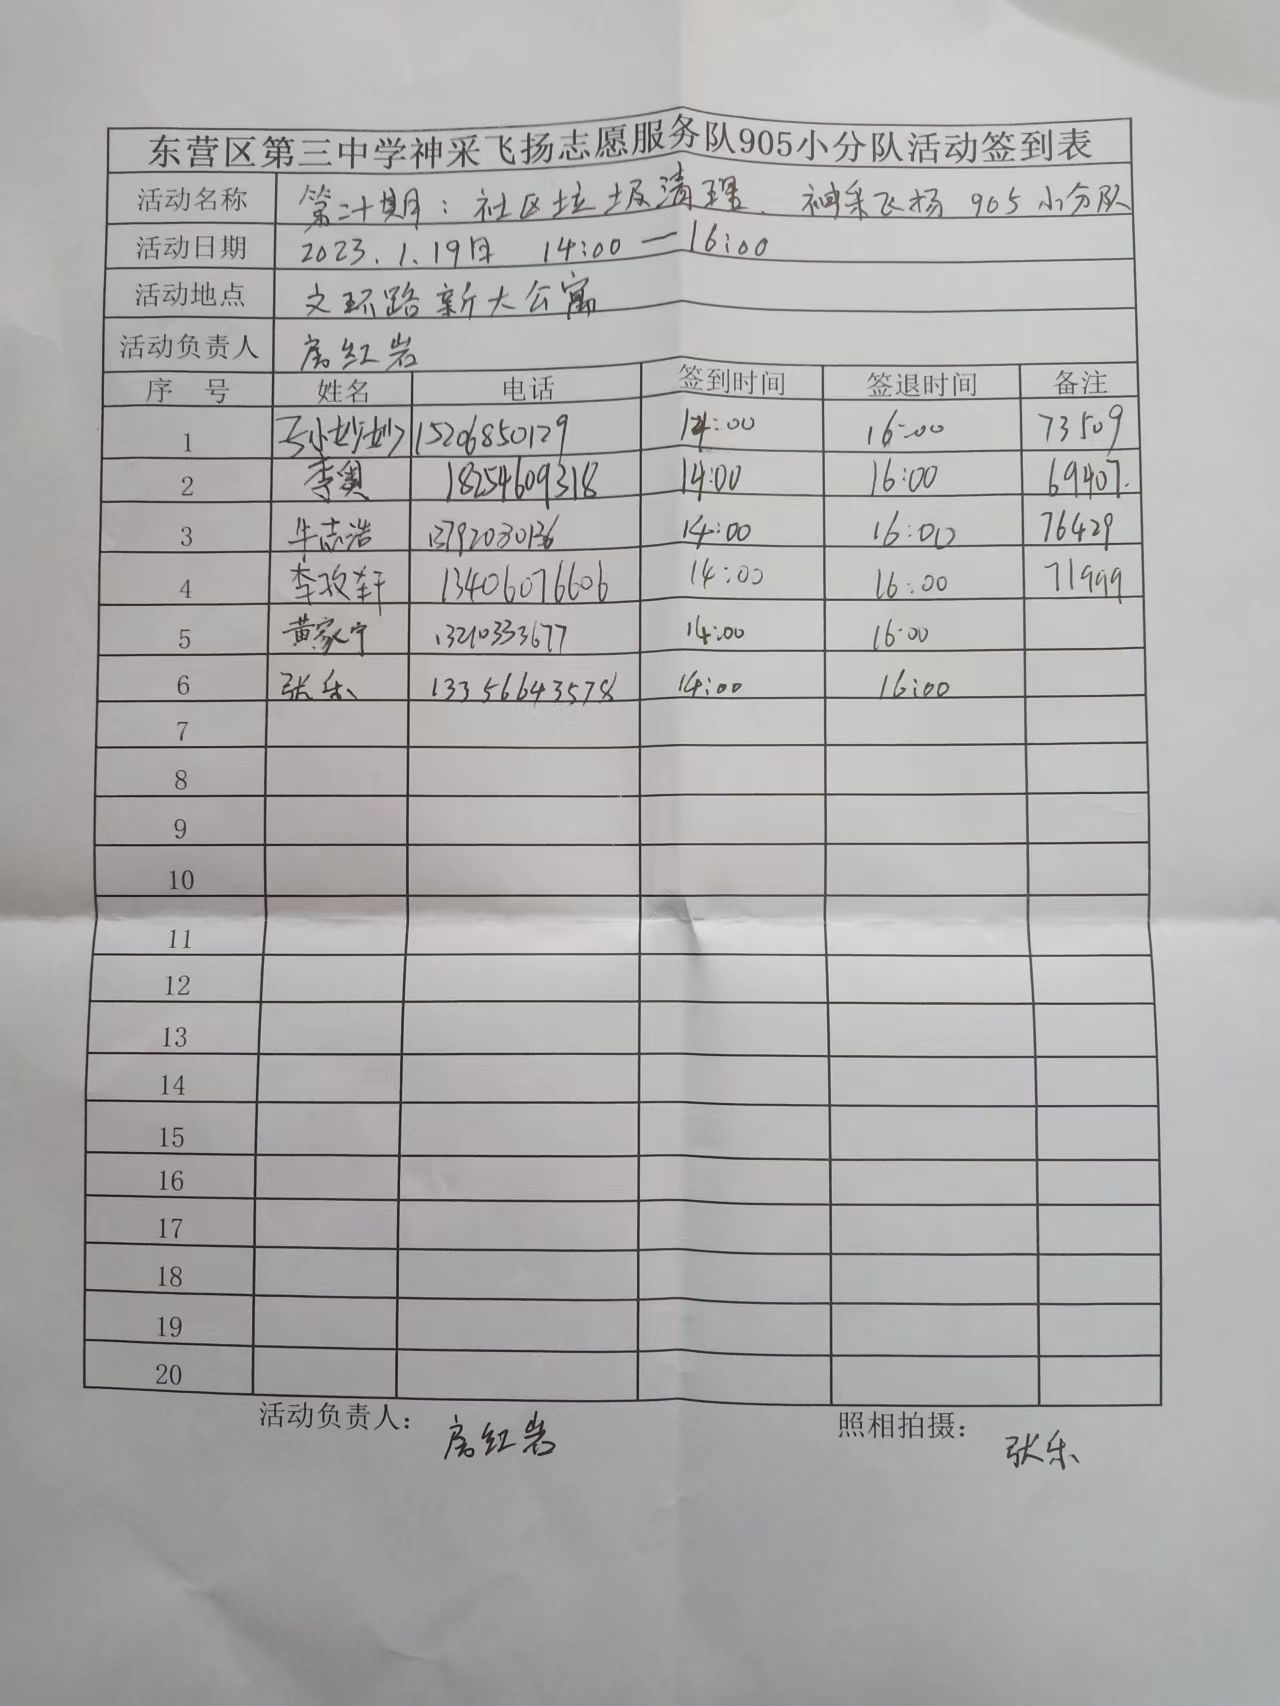 东营区第三中学神采飞扬志愿服务队905小分队活动签到表
活动名称 第二十期：社区垃圾清理、神采飞扬 905 小分队
活动日期 2023.1.19日 14:00—16:00
活动地点 文环路新大公寓
活动负责人 房红岩
序 号 姓名 电话 签到时间 签退时间 备注
1 马小妙 15206850129 14:00 16:00 73509
2 李奥 18254609318 14:00 16:00 69407.
3 牛志浩 13792030136 14:00 16:00 76429
4 李玫轩 13406076606 14:00 16:00 71999
5 黄家宁 13210333677 14:00 16:00
6 张乐 13356643578 14:00 16:00
7
8
9
10
11
12
13
14
15
16
17
18
19
20
活动负责人： 房红岩 照相拍摄： 张乐